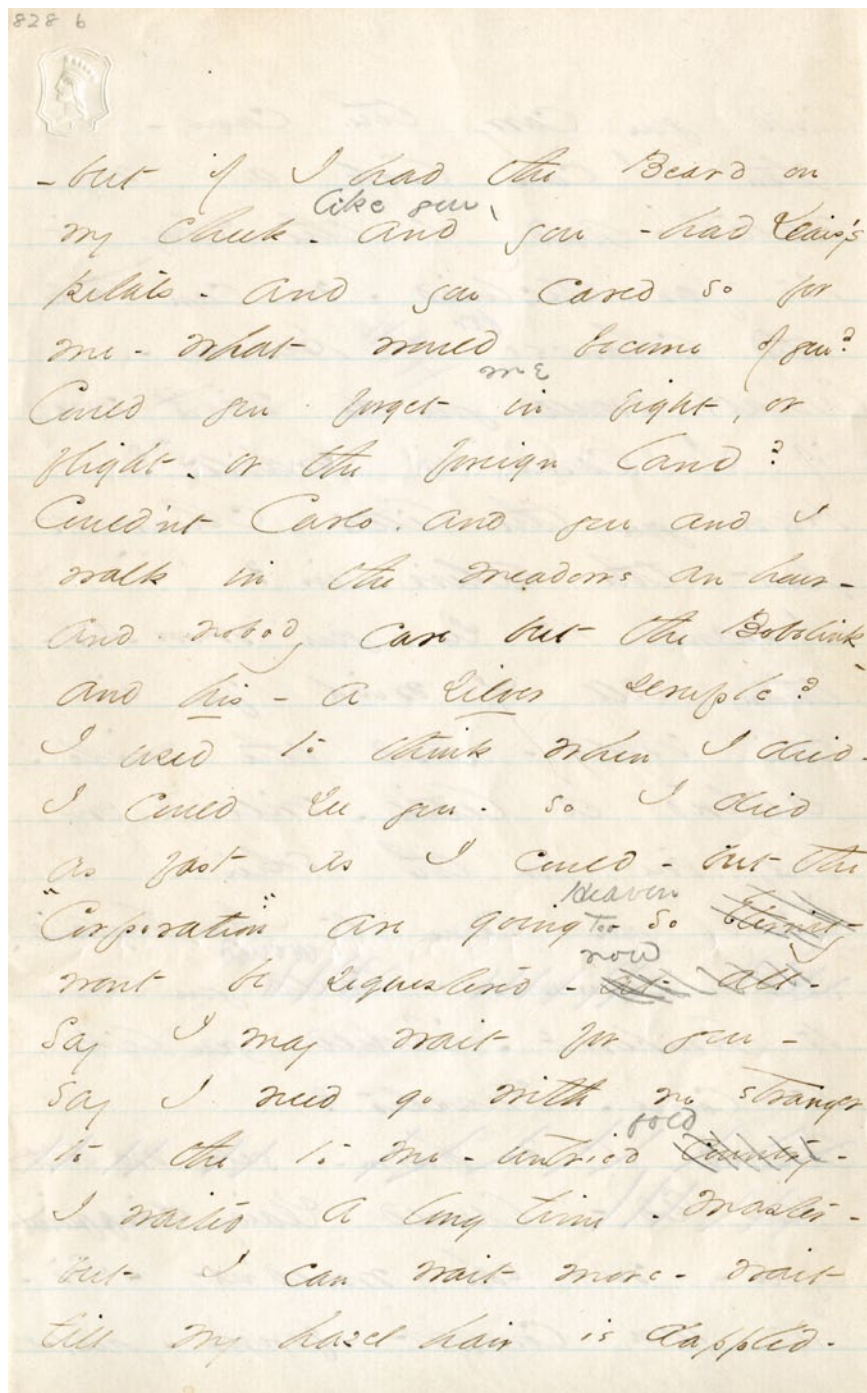 828 b
- but if I had the Beard on
like you
my cheek - and you - had Daisy's
Petals - and you cared so for
me - what would become of you?
me
Could you forget in fight, or
flight - or the foreign land?
Could'nt Carlo - and you and I
walk in the meadows an hour -
and nobody care but the Bobolink -
and his - a silver scruple?
I used to think when I died -
I could see you - so I died
as fast as I could - but the
Heaven
"Corporation" are going too so Eternity
now
wont be sequestered - at all -
Say I may wait for you -
Say I need go with no stranger
fold
to the to me - untried country -
I waited a long time - Master -
but I can wait more - wait
till my hazel hair is dappled -